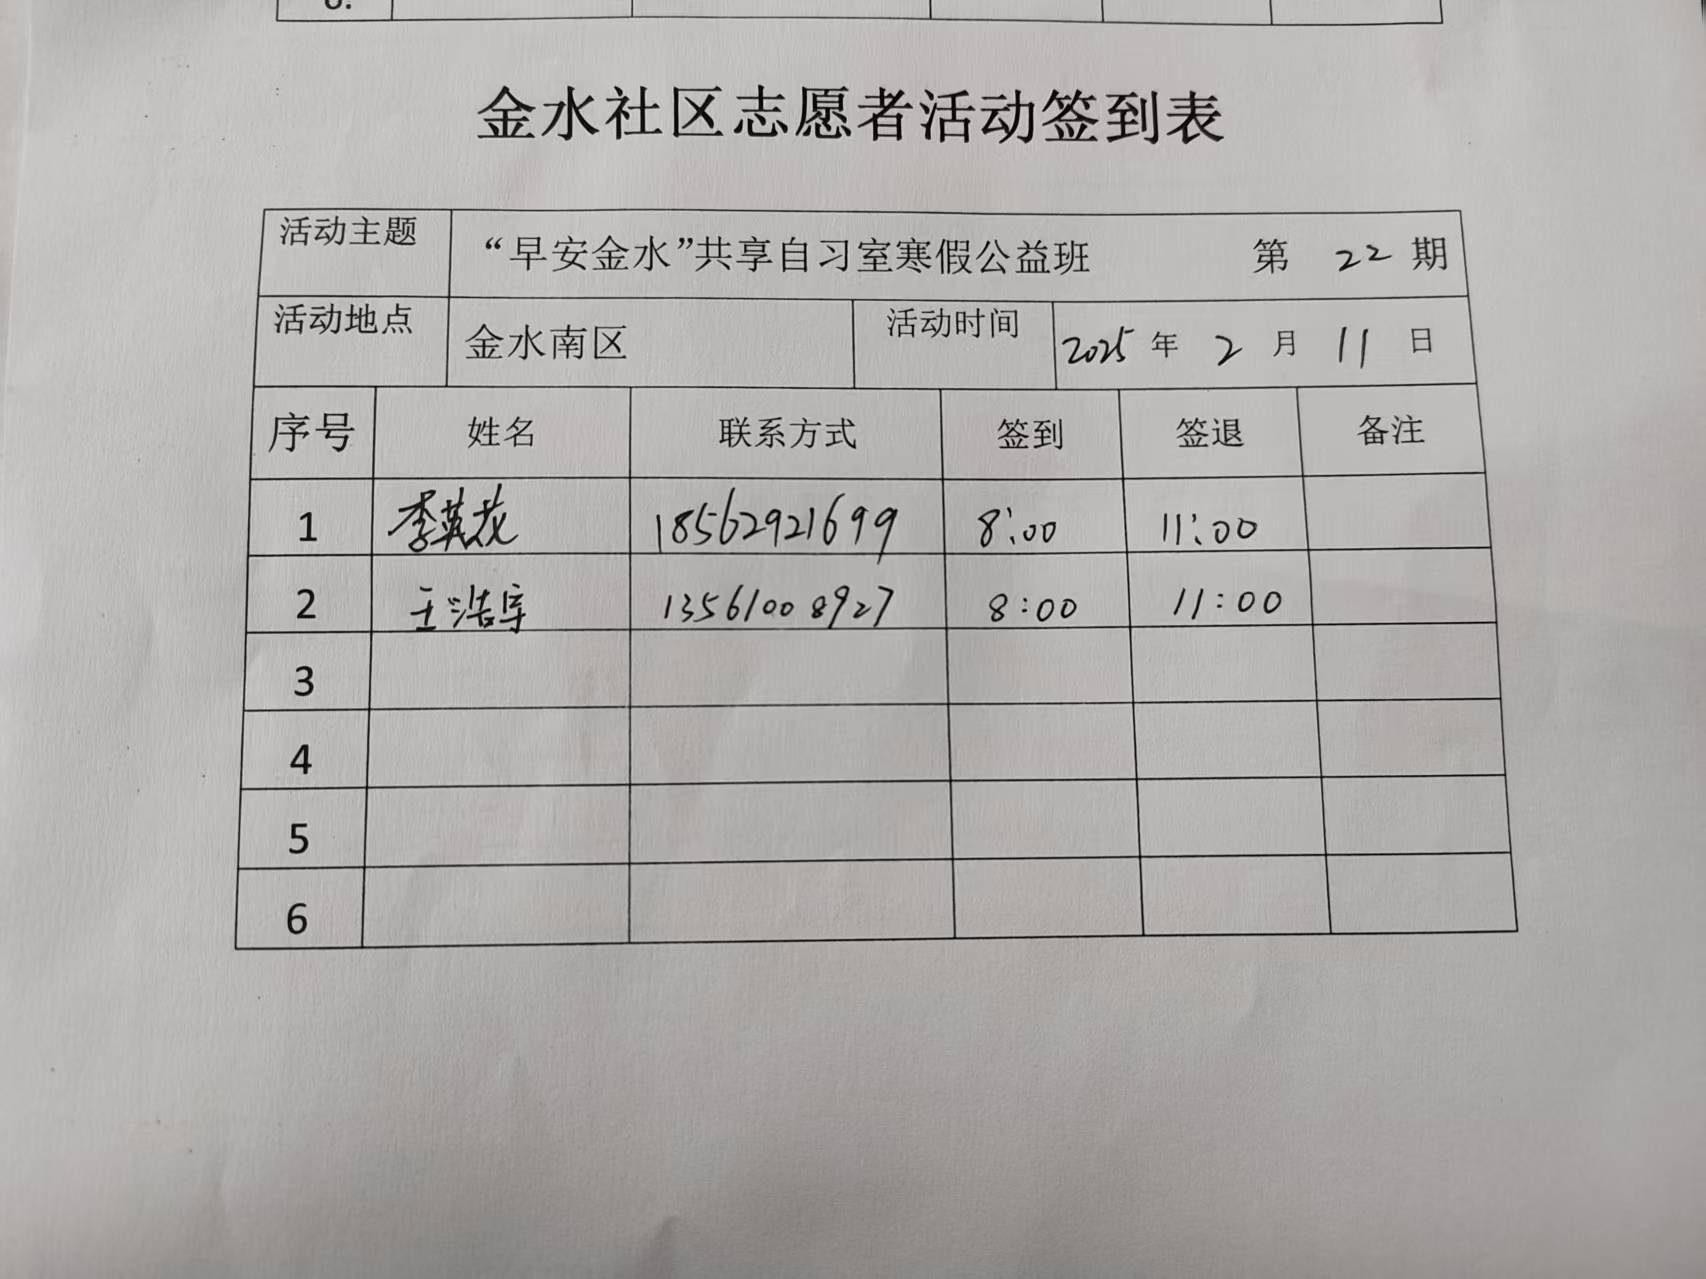 6.
金水社区志愿者活动签到表
活动主题 “早安金水”共享自习室寒假公益班 第 22 期
活动地点 金水南区 活动时间 2025 年 2 月 11 日
序号 姓名 联系方式 签到 签退 备注
1 李英花 18562921699 8:00 11:00
2 王浩宇 13561008927 8:00 11:00
3
4
5
6